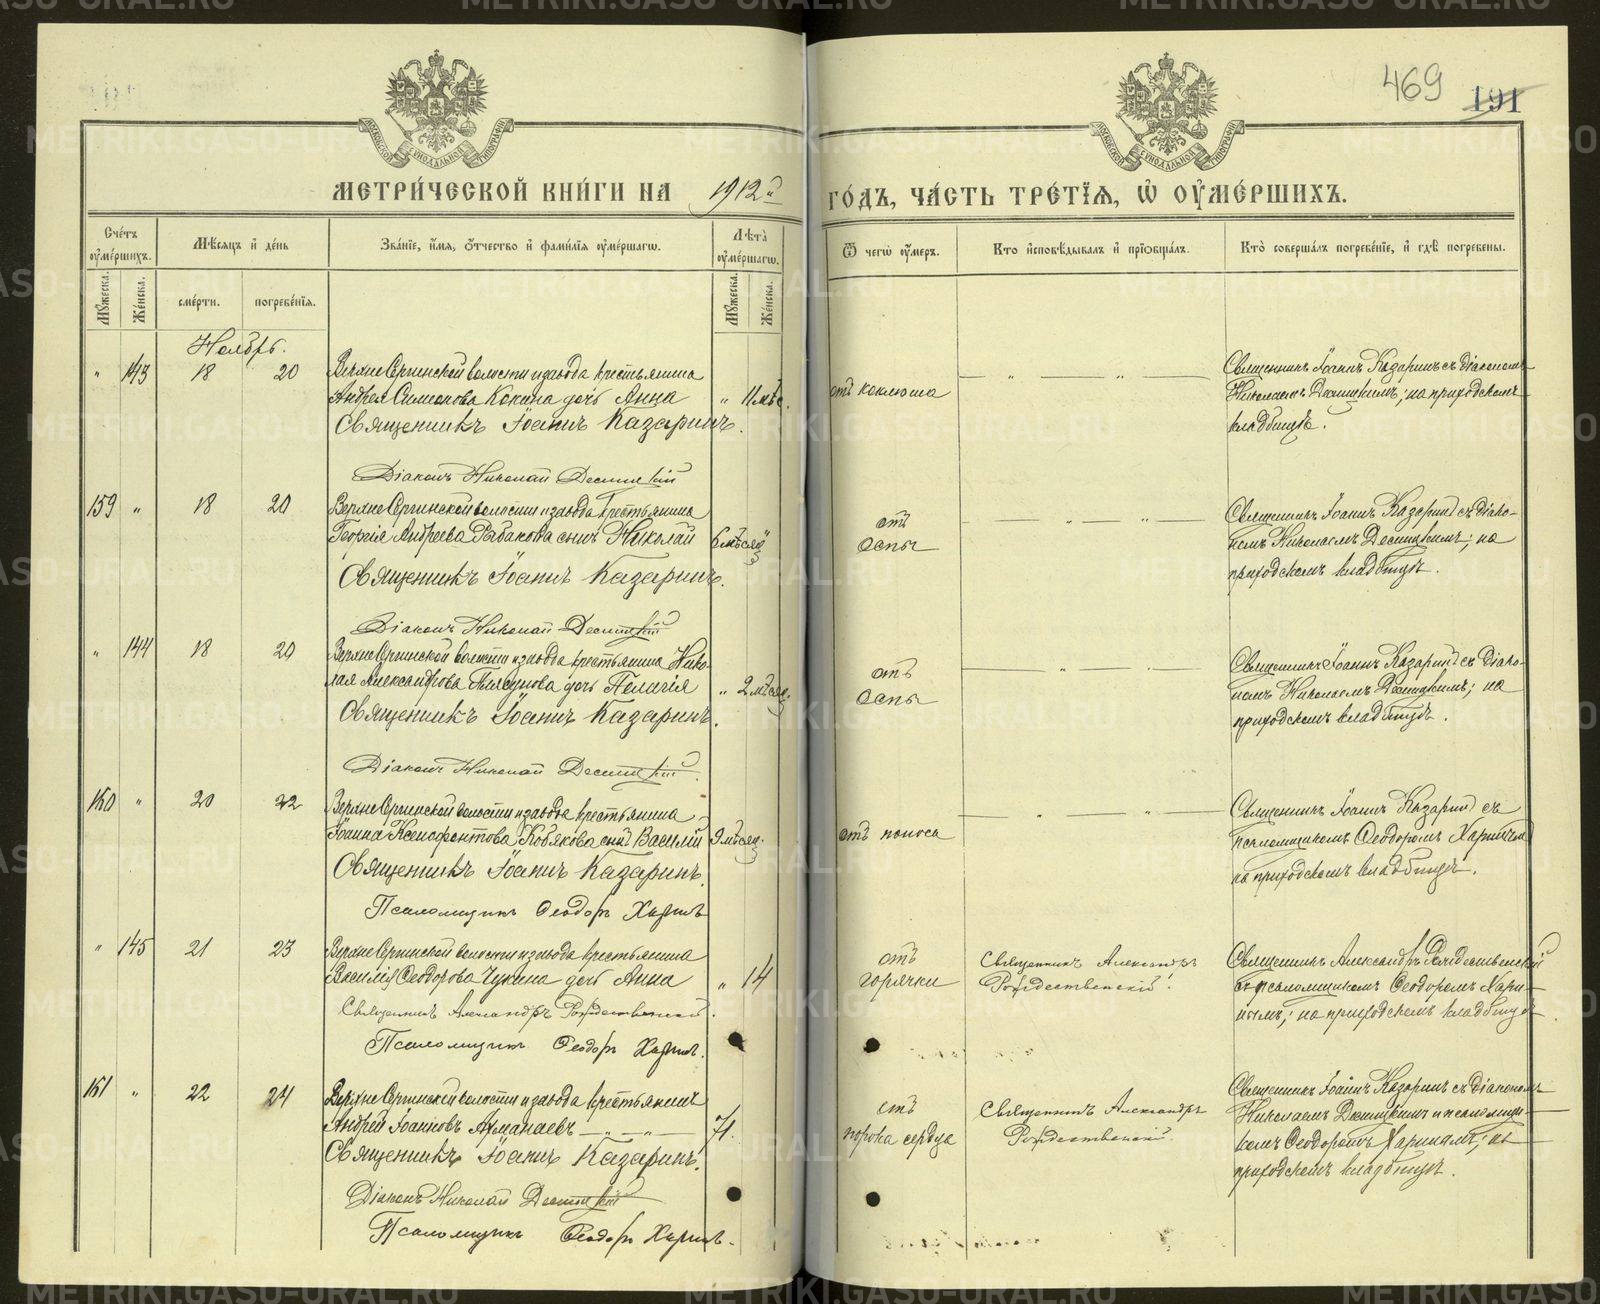 469
191
МЕТРИ́ЧЕСКОЙ КНИ́ГИ НА 1912й ГО́ДЪ, ЧА́СТЬ ТРЕ́ТЇѦ, Ѡ҆ ОУ҆МЕ́РШИХЪ.
Сче́тъ оу҆ме́ршихъ.
Мѣ́сѧцъ и҆ де́нь
Зва́нїе, и҆́мѧ, ѻ҆́тчество и҆ фами́лїѧ оу҆ме́ршагѡ.
Лѣ́та̀ оу҆ме́ршагѡ.
Ѿ чегѡ̀ оу҆́меръ.
Кто̀ и҆сповѣ́дывалъ и҆ прїѡбща́лъ.
Кто̀ соверша́лъ погребе́нїе, и҆ гдѣ̀ погребены.
Мꙋ́жеска.
Же́нска.
сме́рти.
погребе́нїѧ.
Мꙋ́жеска.
Же́нска.
Ноябрь.
" 143 18 20 Верхне Сергинской волости и завода крестьянина
Андрея Симонова Кокина дочь Анна " 11 мѣс.
Священникъ Іоаннъ Казаринъ.
Діаконъ Николай Десницкій
отъ коклюша
Священникъ Іоаннъ Казаринъ съ діакономъ
Николаемъ Десницкимъ; на приходскомъ
кладбищѣ.
159 " 18 20 Верхне Сергинской волости и завода крестьянина
Георгія Андреева Рыбакова сынъ Николай 6 мѣсяц. "
Священникъ Іоаннъ Казаринъ.
Діаконъ Николай Десницкій
отъ
оспы
Священникъ Іоаннъ Казаринъ съ діако-
номъ Николаемъ Десницкимъ; на
приходскомъ кладбищѣ.
" 144 18 20 Верхне Сергинской волости и завода крестьянина Нико-
лая Александрова Плясунова дочь Пелагія " 2 мѣсяц.
Священникъ Іоаннъ Казаринъ.
Діаконъ Николай Десницкій.
отъ
оспы
Священникъ Іоаннъ Казаринъ съ діако-
номъ Николаемъ Десницкимъ; на
приходскомъ кладбищѣ.
160 " 20 22 Верхне Сергинской волости и завода крестьянина
Іоанна Ксенофонтова Кобякова сынъ Василій 9 мѣсяц.
Священникъ Іоаннъ Казаринъ.
Псаломщикъ Ѳеодоръ Харинъ
отъ поноса
Священникъ Іоаннъ Казаринъ съ
псаломщикомъ Ѳеодоромъ Харинымъ
на приходскомъ кладбищѣ.
" 145 21 23 Верхне Сергинской волости и завода крестьянина
Василія Ѳеодорова Чукина дочь Анна " 14
Священникъ Александръ Рождественскій.
Псаломщикъ Ѳеодоръ Харинъ.
отъ
горячки
Священникъ Александръ
Рождественскій.
Священникъ Александръ Рождественскій
съ псаломщикомъ Ѳеодоромъ Хари-
нымъ; на приходскомъ кладбищѣ.
161 " 22 24 Верхне Сергинской волости и завода крестьянинъ
Андрей Іоанновъ Атманаевъ — " — " — 71.
Священникъ Іоаннъ Казаринъ.
Діаконъ Николай Десницкій
Псаломщикъ Ѳеодоръ Харинъ.
отъ
порока сердца
Священникъ Александръ
Рождественскій.
Священникъ Іоаннъ Казаринъ съ діакономъ
Николаемъ Десницкимъ и псаломщи-
комъ Ѳеодоромъ Харинымъ; на
приходскомъ кладбищѣ.
METRIKI.GASO-URAL.RU